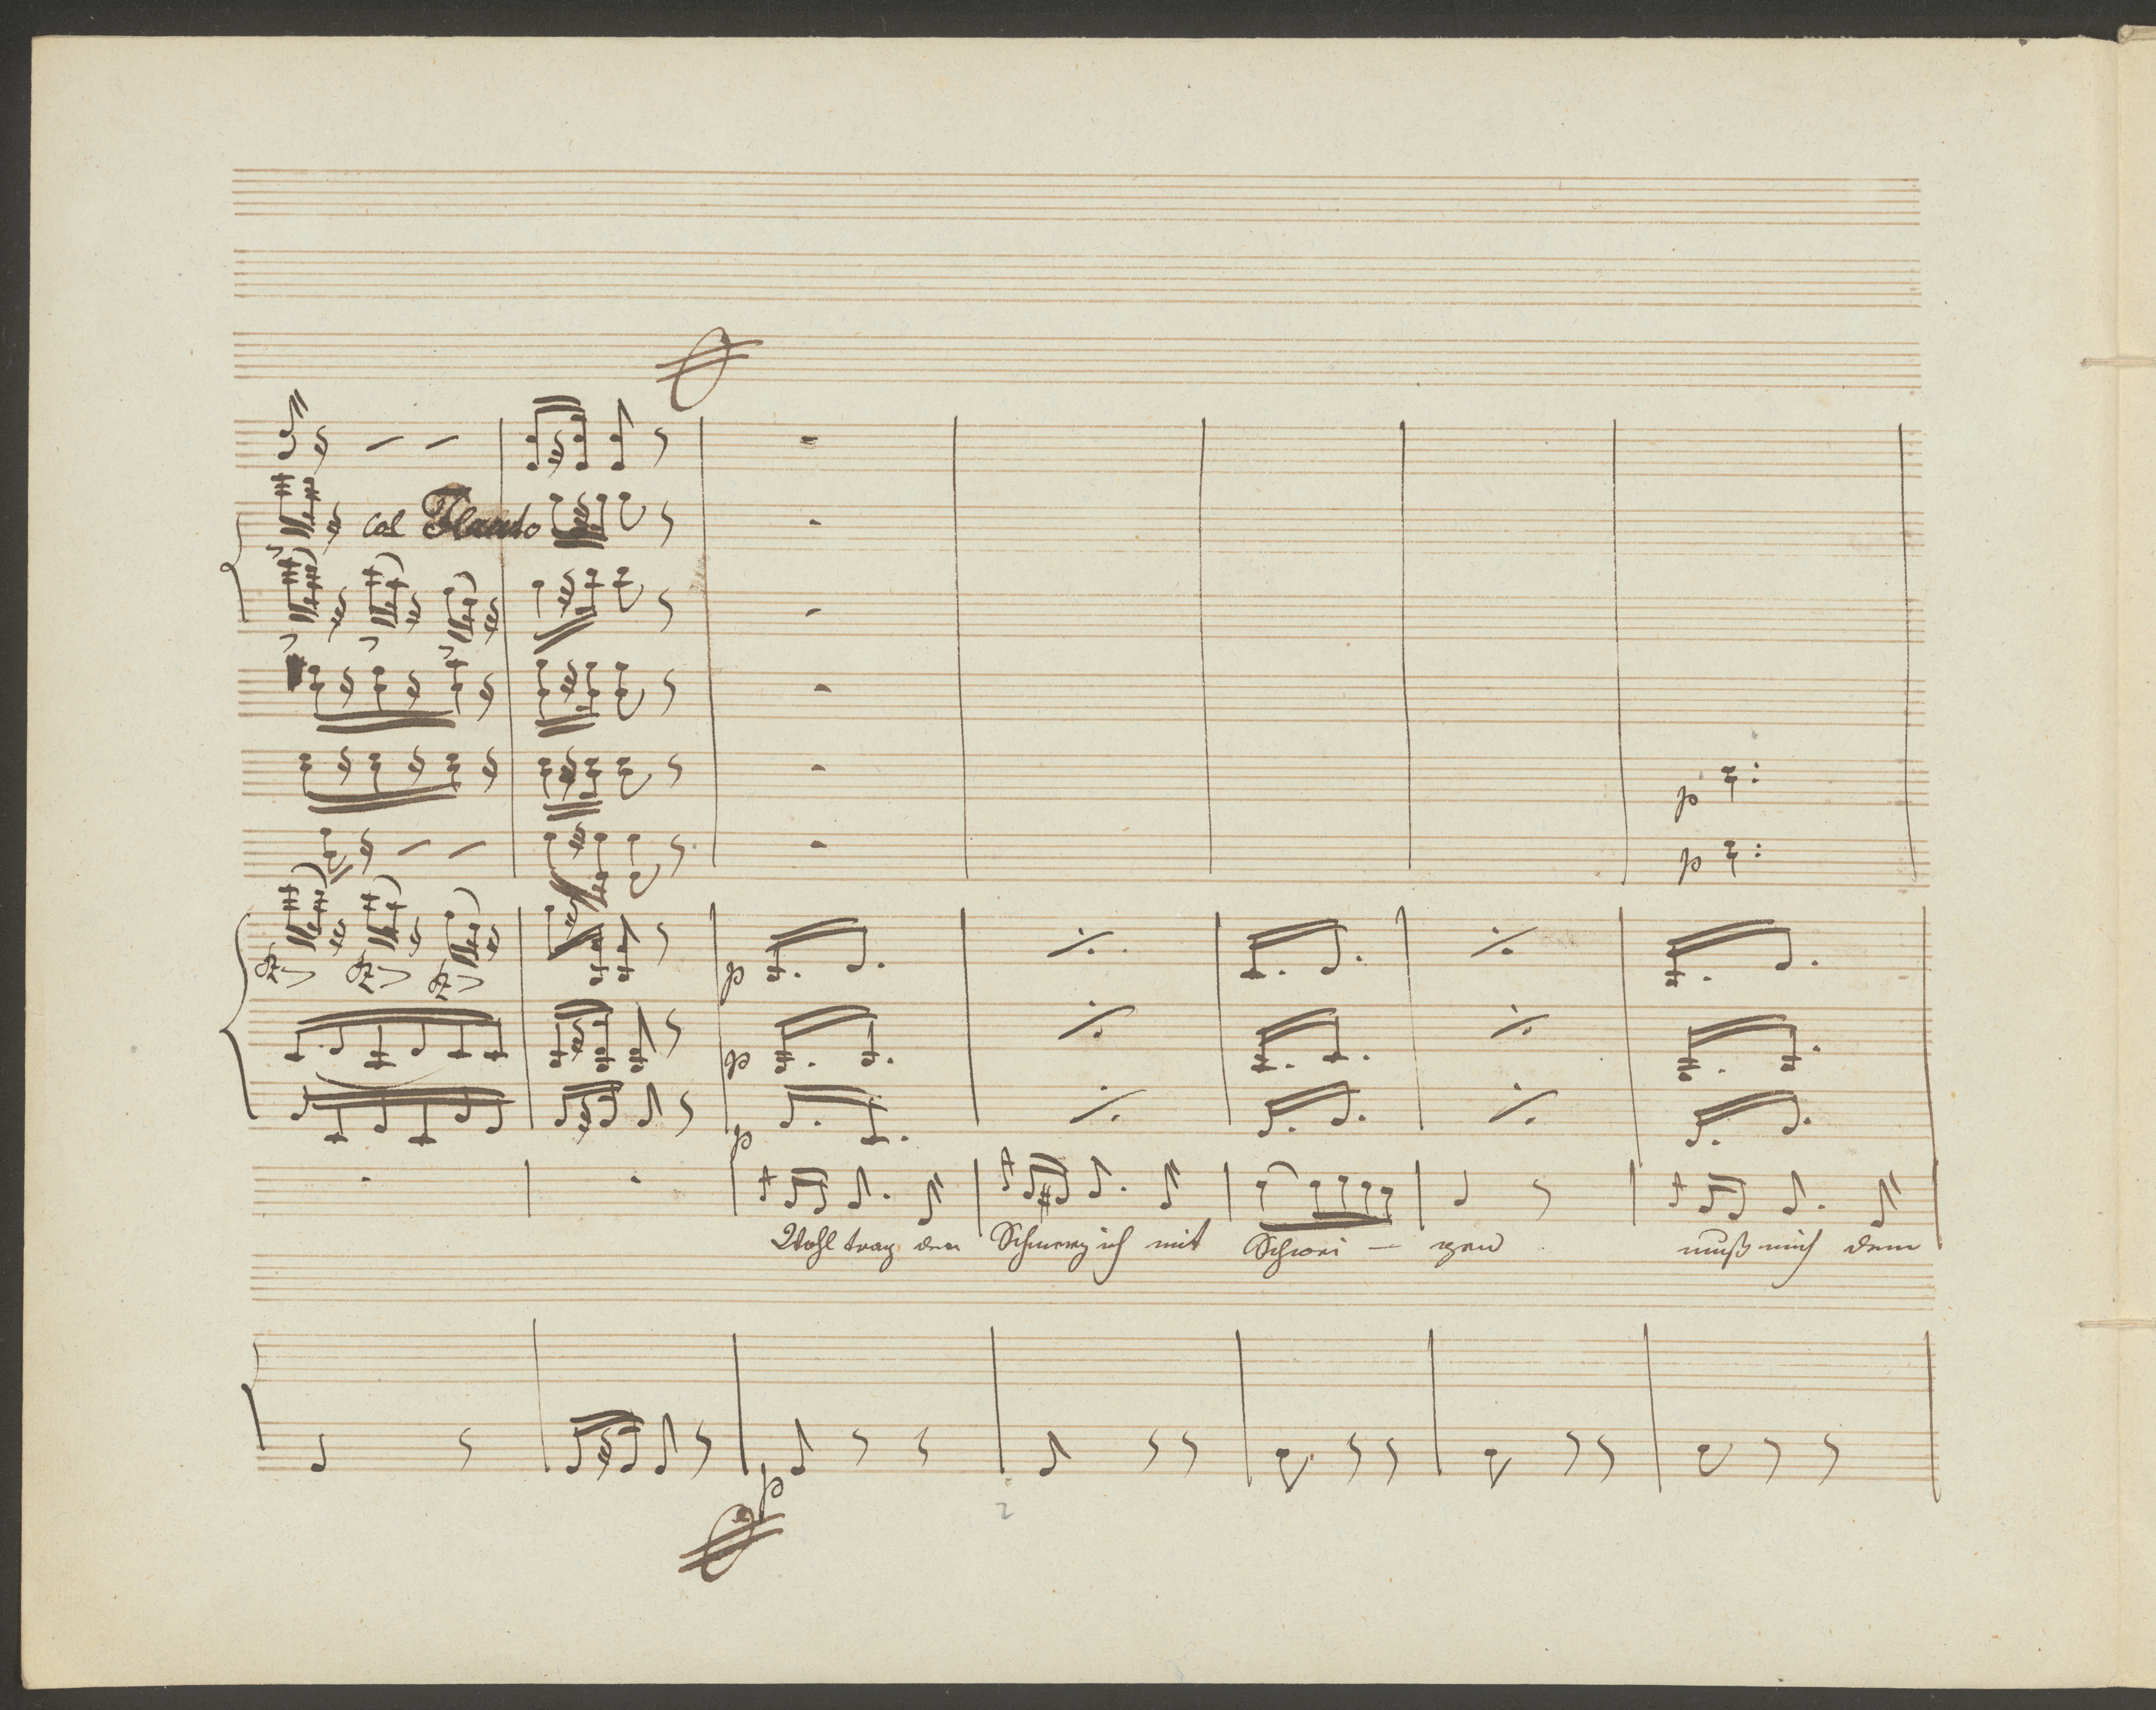 col Flauto
p
p
p
p
p
Wohl trag den Schmerz ich mit Schwei – gen muß mich dem
p
2